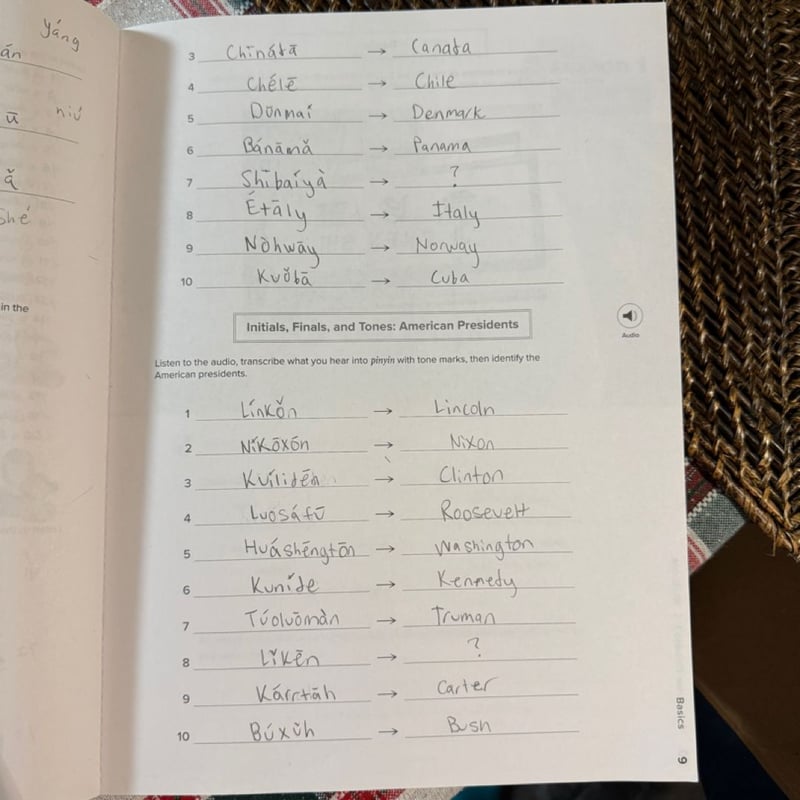 yáng
án
ū niú
ǎ
shé
in the
3 Chīnátā → Canada
4 Chélē → Chile
5 Dūnmaí → Denmark
6 Bánāmǎ → Panama
7 Shībaíyà → ?
8 Étāly → Italy
9 Nòhwāy → Norway
10 Kuǒbā → Cuba
Initials, Finals, and Tones: American Presidents
Audio
Listen to the audio, transcribe what you hear into pinyin with tone marks, then identify the
American presidents.
1 Línkǒn → Lincoln
2 Níkōxón → Nixon
3 Kuílidēn → Clinton
4 Luosáfū → Roosevelt
5 Huáshēngtōn → Washington
6 Kuníde → Kennedy
7 Túoluōmàn → Truman
8 Lǐkēn → ?
9 Kárrtāh → Carter
10 Búxǔh → Bush
Basics
9